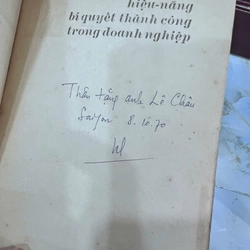 hiệu-năng
bí quyết thành công
trong doanh nghiệp
Thân tặng anh Lê Châu
Saigon 8.10.70